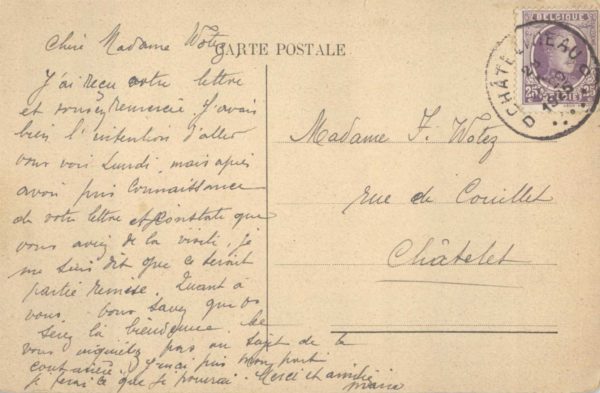 CARTE POSTALE
Chère Madame Wotez
J'ai reçu votre lettre
et remercie. J'avais
bien l'intention d'aller
vous voir Lundi, mais après
avoir pris connaissance
de votre lettre et constaté que
vous aviez de la visite, je
me suis dit que ce serait
partie remise. Quant à
vous. Vous savez que vs
serez la bienvenue. Ne
vous inquiétez pas au sujet de la
. J'irai pris mon parti
je ferai ce que je pourrai. Merci et amitiés
BELGIQUE
25
BELGIË
CHÂTELINEAU
D
Madame F. Wotez
rue de Couillet
Châtelet